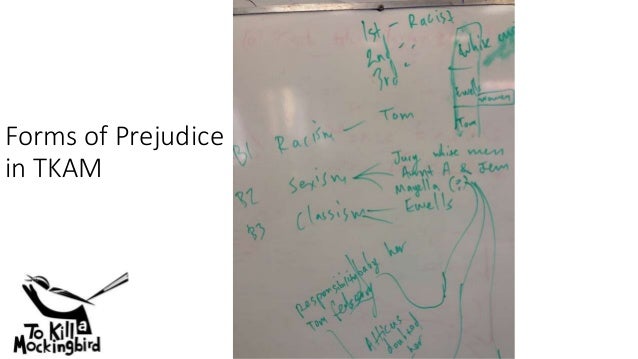 Forms of Prejudice
in TKAM
To Kill a
Mockingbird
1st - Racist
2nd "
3rd "
white
Ewells
women
Tom
B1 Racism - Tom
B2 Sexism
Jury white men
Aunt A & Jem
Mayella (?)
B3 Classism Ewells
Responsibility her
Tom
Atticus
her